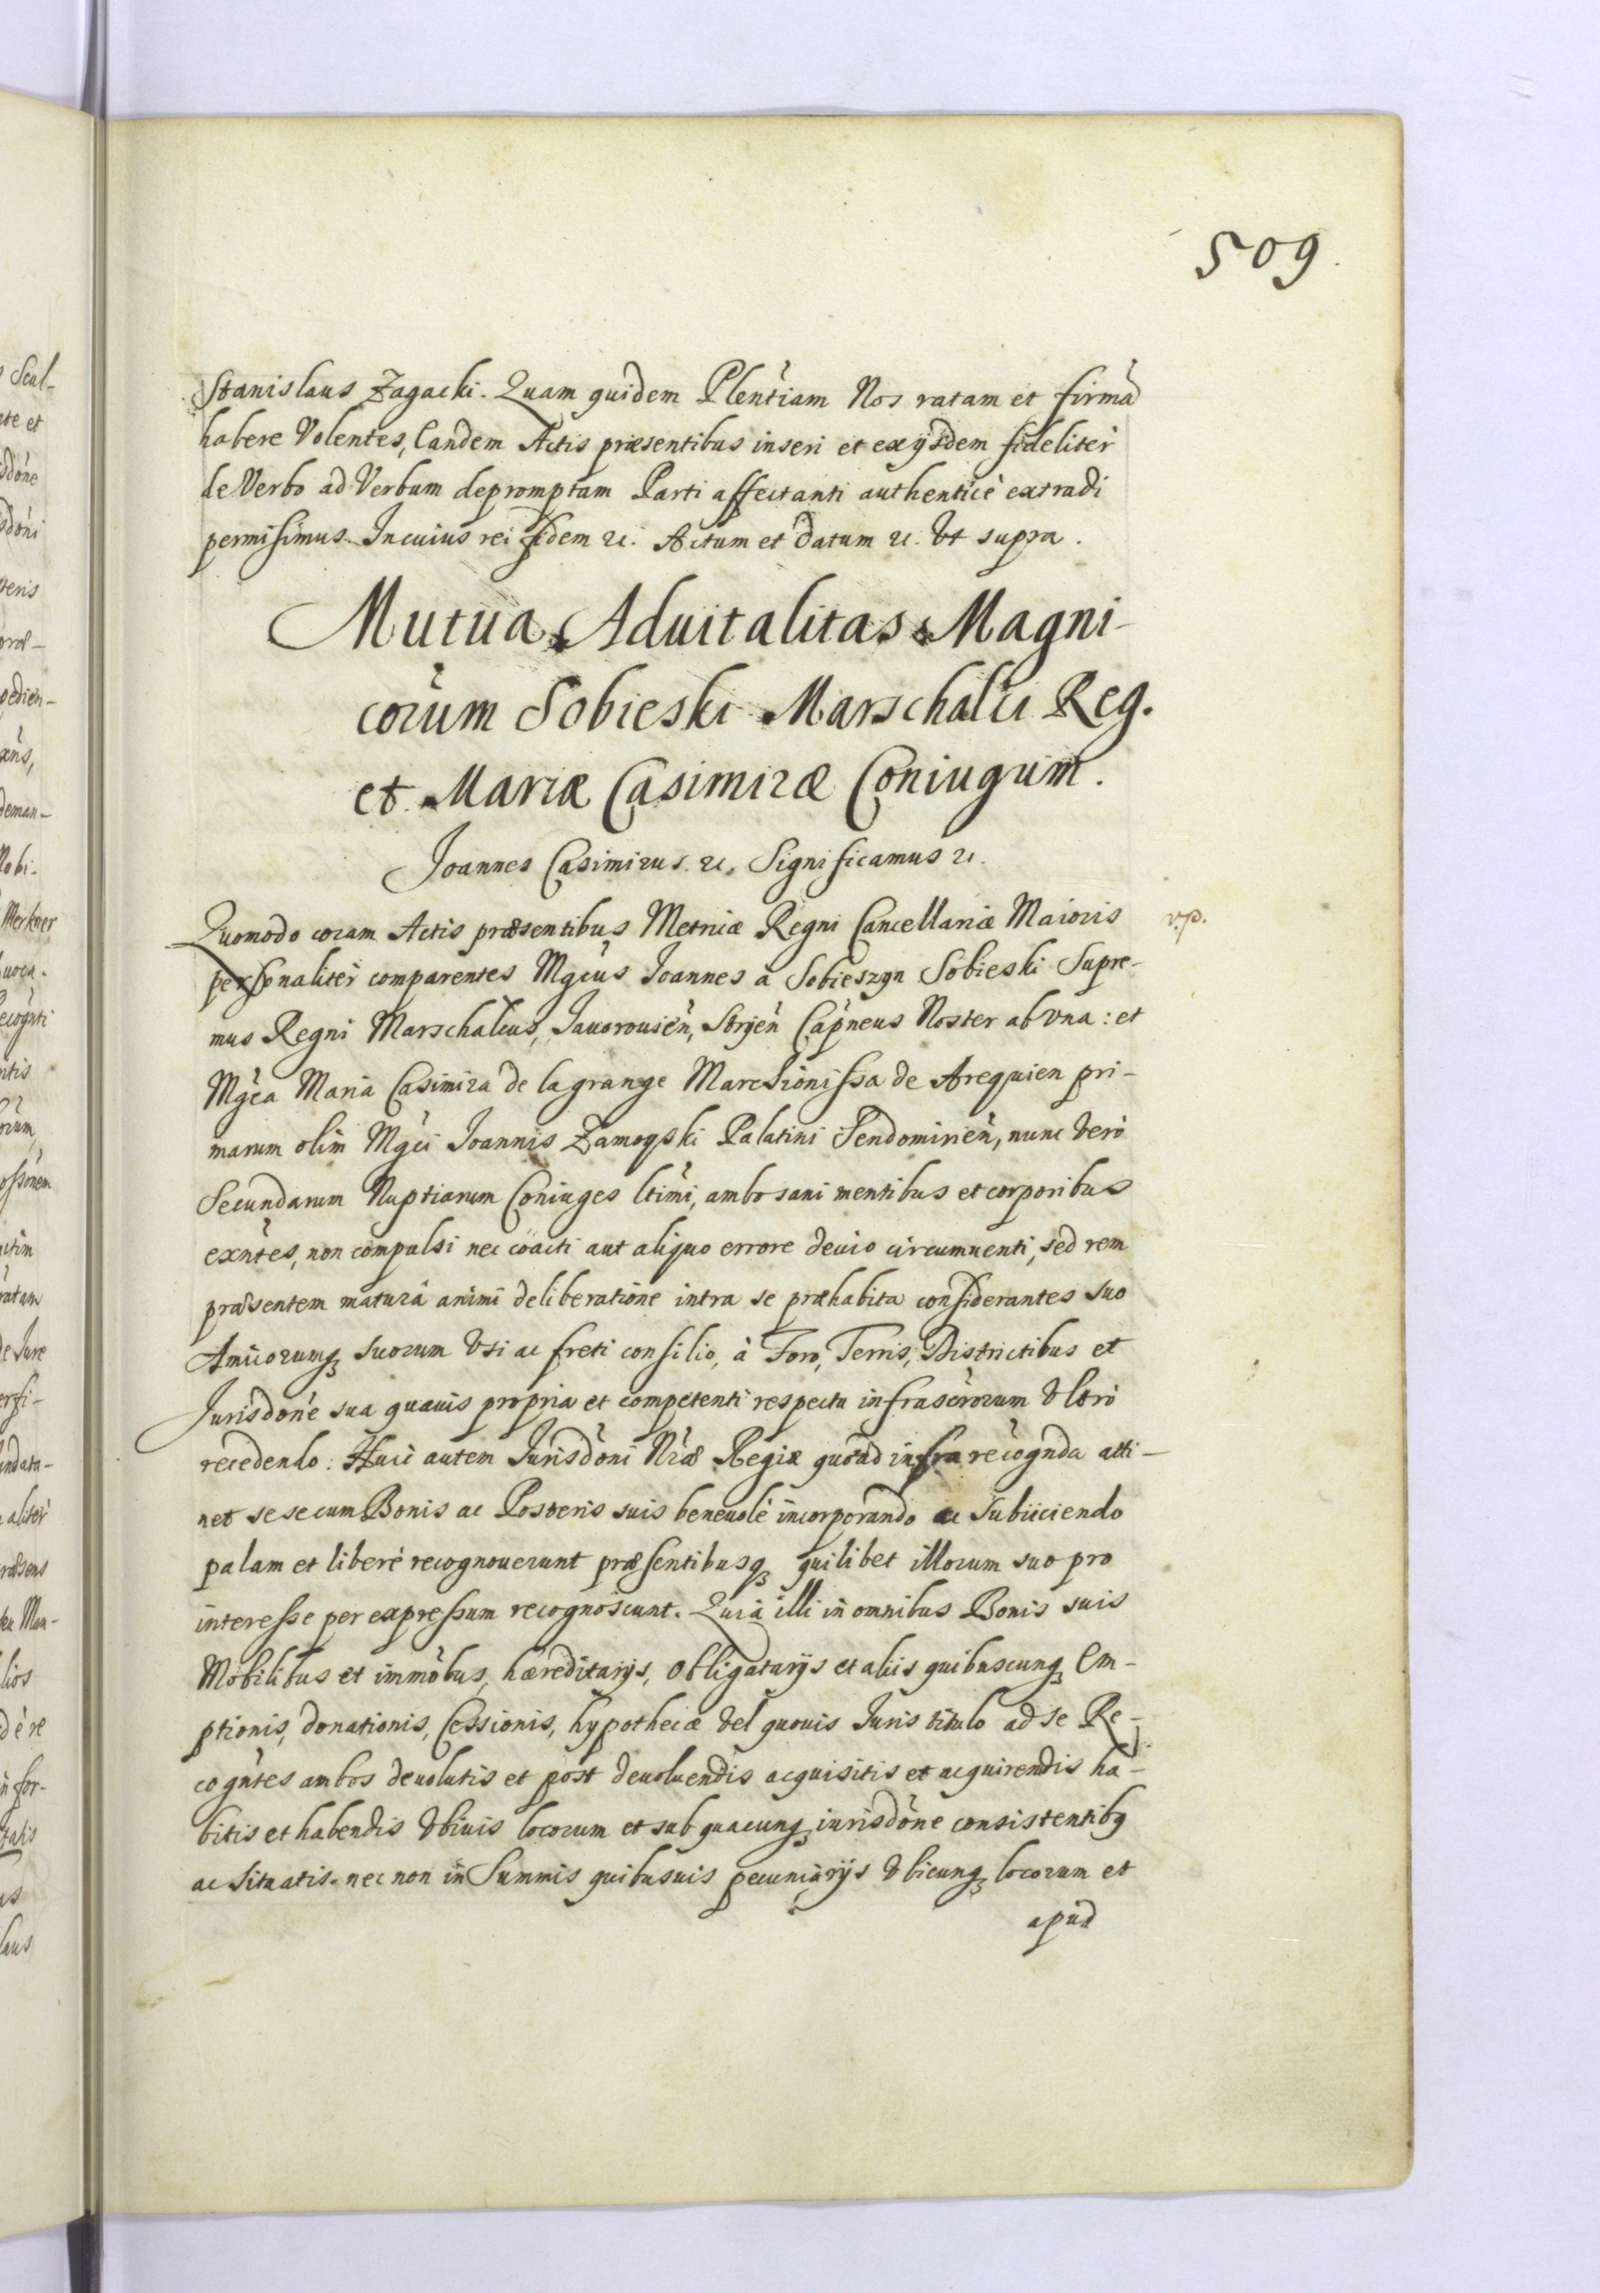 509.
Stanislaus Zagacki. Quam quidem Plen̄tiam Nos ratam et firmā
habere Volentes, Eandem Actis præsentibus inseri et exijsdem fideliter
de Verbo ad Verbum depromptam Parti affectanti authenticè extradi
permisimus. In cuius rei fidem &c. Actum et datum &c. Vt supra.
Mutua Aduitalitas Magni-
corum Sobieski Marschalci Reg.
et Mariæ Casimiræ Coniugum.
Joannes Casimirus &c. Significamus &c.
Quomodo coram Actis præsentibus Metricæ Regni Cancellariæ Maioris
v.p.
personaliter comparentes Mg̃cus Joannes a Sobieszyn Sobieski Supre-
mus Regni Marschalcus, Jauorouien̄, Stryen̄ Cap̄neus Noster ab vna: et
Mg̃ca Maria Casimira de la grange Marchionissa de Arequien pri-
marum olim Mg̃ci Joannis Zamoyski Palatini Sendomirien̄, nunc verò
Secundarum Nuptiarum Coniuges ltimi, ambo sani mentibus et corporibus
exñtes, non compulsi nec coacti aut aliquo errore deuio circumuenti, sed rem
præsentem maturâ animi deliberatione intra se præhabita considerantes suo
Amicorumq₃ suorum vsi ac freti consilio, à Foro, Terris, Districtibus et
Jurisdōne sua quauis propria et competenti respectu infrascrōrum vltrò
recedendo. Huic autem Jurisdōni Nr̃æ Regiæ quoad infra recogñda atti-
net se se cum Bonis ac Posteris suis beneuolè incorporando ac subiiciendo
palam et liberè recognouerunt præsentibusq₃ quilibet illorum suo pro
interesse per expressum recognoscunt. Quia illi in omnibus Bonis suis
Mobilibus et immōbus, hæreditarijs, obligatarijs et alijs quibuscunq₃ Em-
ptionis, donationis, Cessionis, hypothecæ vel quouis Juris titulo ad se Re-
cogñtes ambos deuolutis et post deuoluendis acquisitis et acquirendis ha-
bitis et habendis vbiuis locorum et sub quacunq₃ iurisdōne consistentibq
ac situatis. nec non in Summis quibusuis pecuniarijs vbicunq₃ locorum et
apud